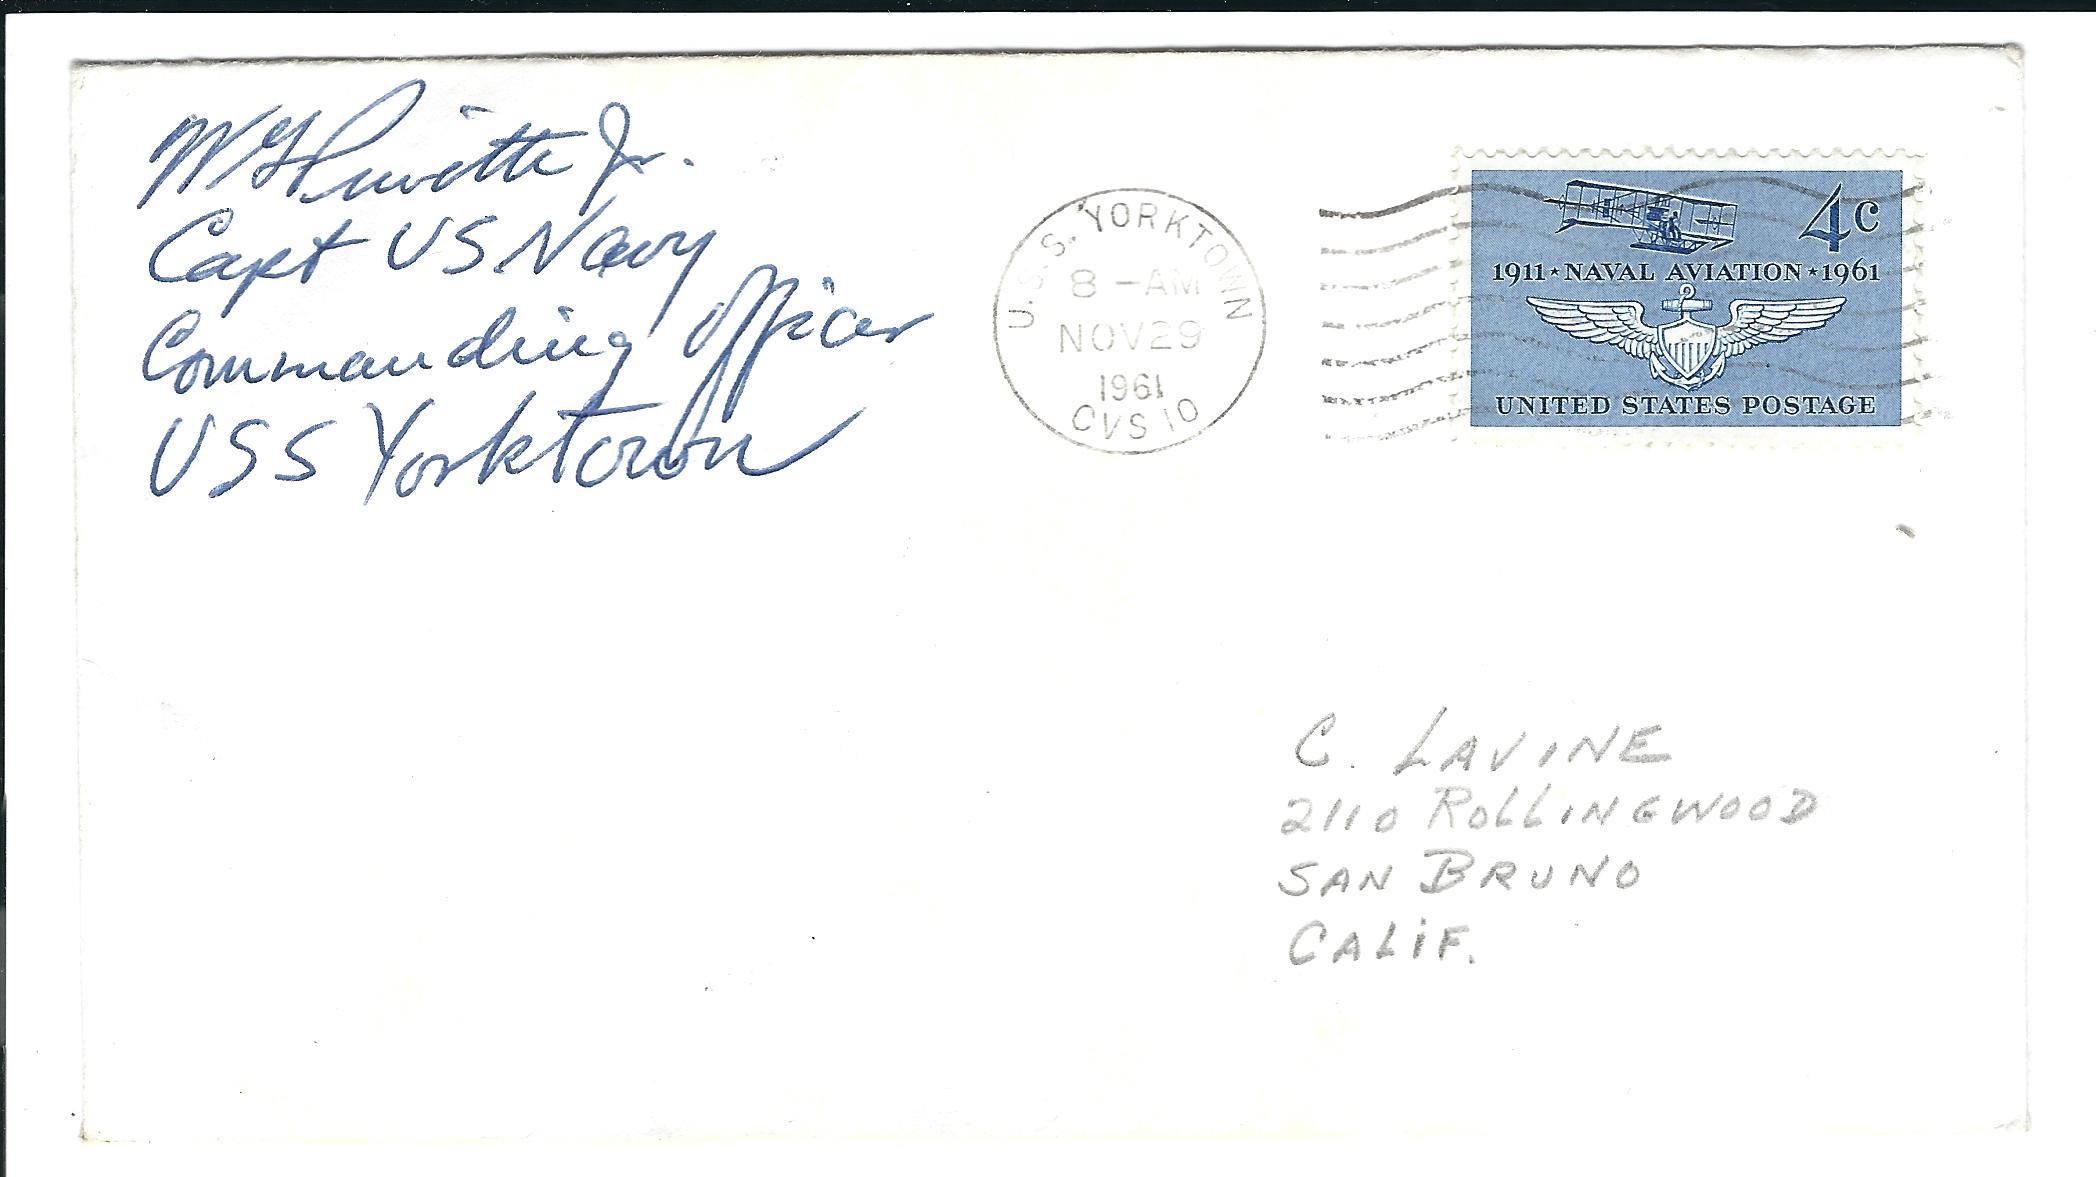 W G Privette Jr.
Capt US Navy
Commanding Officer
USS Yorktown
U.S.S. YORKTOWN
8 - AM
NOV 29
1961
CVS 10
4c
1911 ★ NAVAL AVIATION ★ 1961
UNITED STATES POSTAGE
C. LAVINE
2110 ROLLINGWOOD
SAN BRUNO
CALIF.